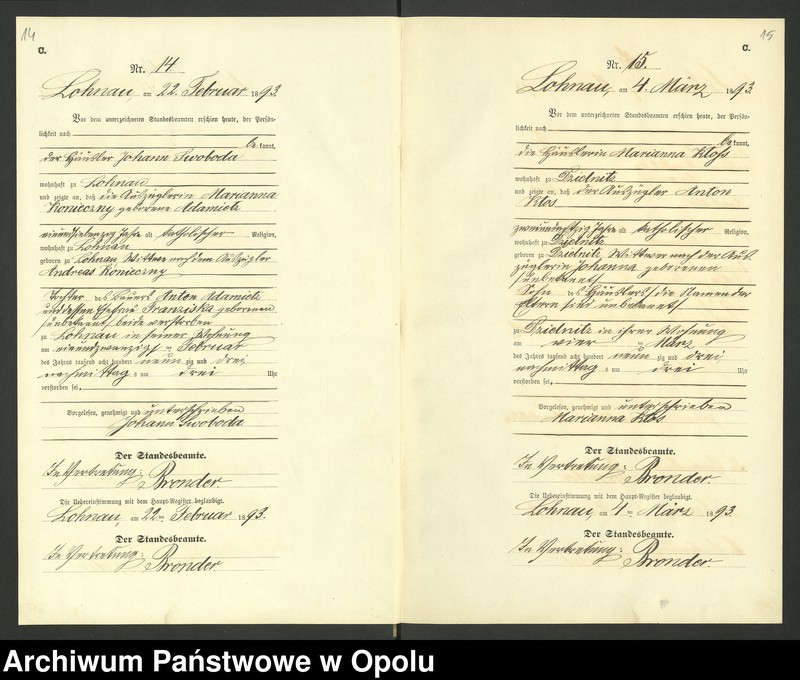 14
C.
Nr. 14
Lohnau, am 22. Februar 1893.
Vor dem unterzeichneten Standesbeamten erschien heute, der Persön-
lichkeit nach
bekannt,
der Häusler Johann Swoboda
wohnhaft zu Lohnau
und zeigte an, daß die Auszüglerin Marianna
Konieczny geborene Adamietz
Jahre alt katholischer Religion,
wohnhaft zu Lohnau
geboren zu Lohnau, Wittwe nach dem Auszügler
Andreas Konieczny
Tochter des Bauers Anton Adamietz
und dessen Ehefrau Franziska geborenen
/unbekannt/ beide verstorben
zu Lohnau in seiner Wohnung
am einundzwanzigsten Februar
des Jahres tausend acht hundert neunzig und drei
nachmittag s um drei Uhr
verstorben sei.
Vorgelesen, genehmigt und unterschrieben
Johann Swoboda
Der Standesbeamte.
In Vertretung: Bronder
Die Uebereinstimmung mit dem Haupt-Register beglaubigt.
Lohnau, am 22ten Februar 1893.
Der Standesbeamte.
In Vertretung: Bronder
15
C.
Nr. 15.
Lohnau, am 4. März 1893.
Vor dem unterzeichneten Standesbeamten erschien heute, der Persön-
lichkeit nach
bekannt,
die Häuslerin Marianna Kloss
wohnhaft zu Dzielnitz
und zeigte an, daß der Auszügler Anton
Klos
zweiundachtzig Jahre alt katholischer Religion,
wohnhaft zu Dzielnitz
geboren zu Dzielnitz, Wittwer nach der Aus-
züglerin Johanna geborenen
/unbekannt/
Sohn des Häuslers /die Namen der
Eltern sind unbekannt/
zu Dzielnitz in ihrer Wohnung
am vier ten März
des Jahres tausend acht hundert neunzig und drei
nachmittag s um drei Uhr
verstorben sei.
Vorgelesen, genehmigt und unterschrieben
Marianna Klos
Der Standesbeamte.
In Vertretung: Bronder.
Die Uebereinstimmung mit dem Haupt-Register beglaubigt.
Lohnau, am 4ten März 1893.
Der Standesbeamte.
In Vertretung: Bronder.
Archiwum Państwowe w Opolu